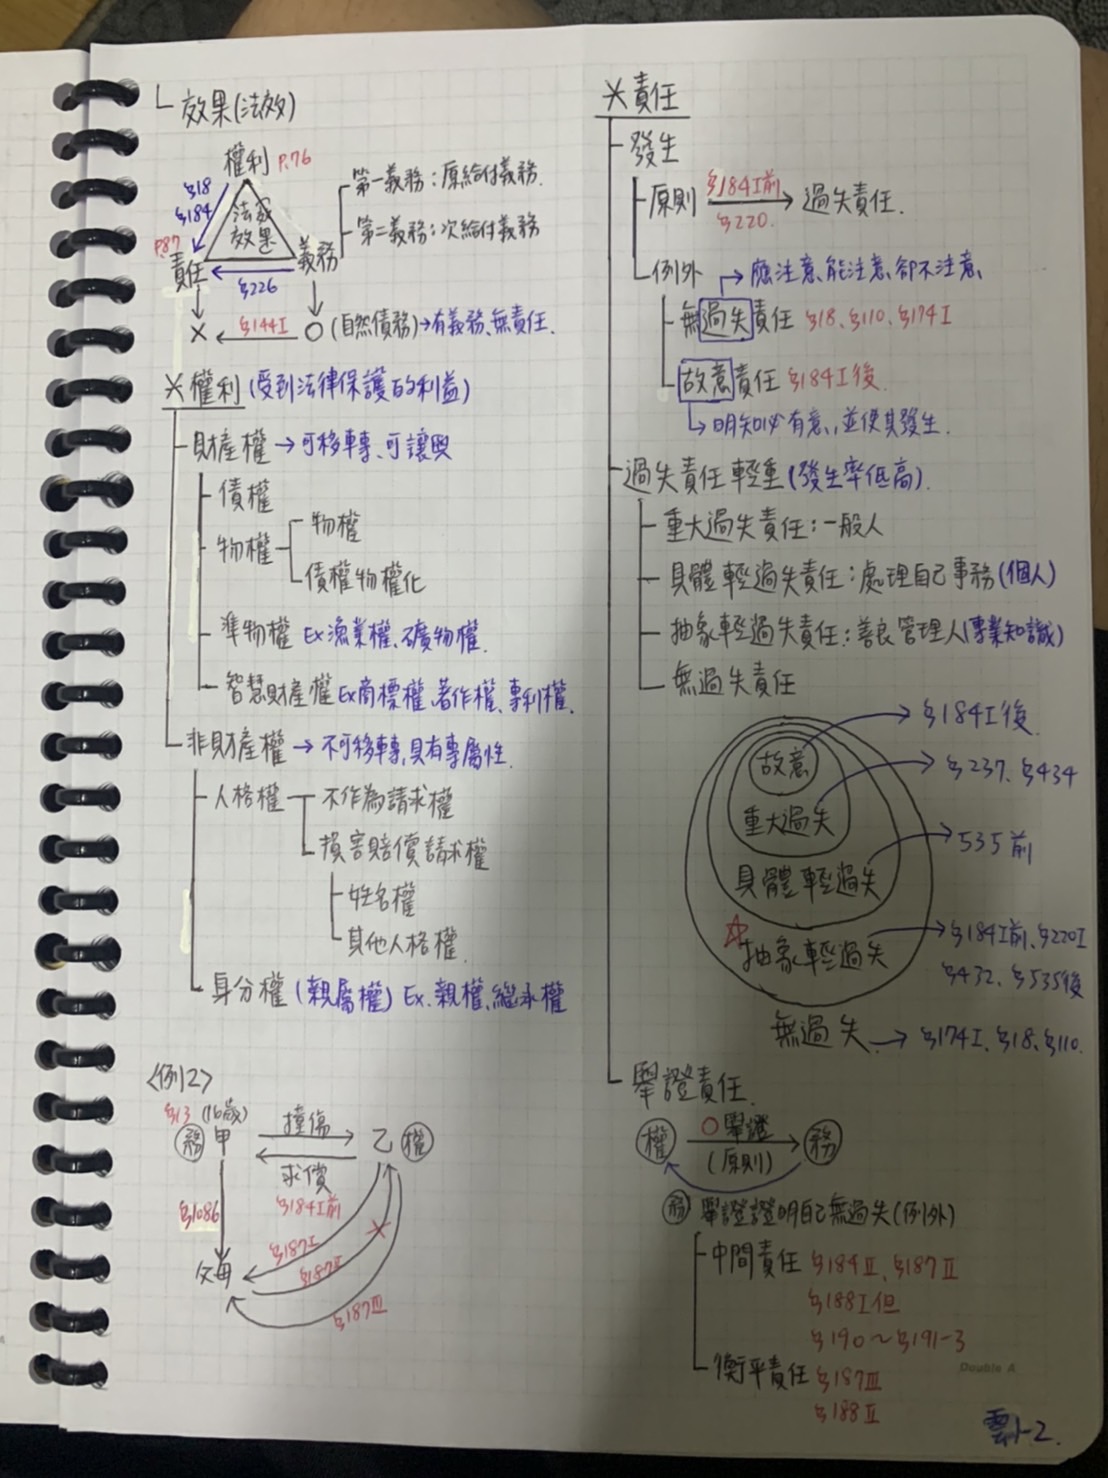 效果(法效)
權利 P.76
§18
§184
法效
效果
P.87
責任
義務
§226
第一義務:原給付義務.
第二義務:次給付義務
× §144I ○(自然債務)→有義務、無責任.
※權利(受到法律保護的利益)
財產權→可移轉、可讓與
債權
物權
物權
債權物權化
準物權 Ex漁業權、礦物權.
智慧財產權 Ex商標權、著作權、專利權.
非財產權→不可移轉,具有專屬性.
人格權
不作為請求權
損害賠償請求權
姓名權
其他人格權.
身分權(親屬權) Ex.親權,繼承權
<例2>
§13 (16歲)
務 甲 撞傷 乙 權
求償
§184I前
§1086
§187I
§187II
§187III
父母
※責任
發生
原則 §184I前 §220. 過失責任.
例外 應注意、能注意、卻不注意、
無過失責任 §18、§110、§174I
故意責任 §184I後.
明知必有意,並使其發生.
過失責任輕重(發生率低高).
重大過失責任:一般人
具體輕過失責任:處理自己事務(個人)
抽象輕過失責任:善良管理人(專業知識)
無過失責任
故意 → §184I後.
重大過失 → §237、§434
具體輕過失 → 535前
☆抽象輕過失 → §184I前、§220I
§432、§535後
無過失 → §174I、§18、§110.
舉證責任.
權 ○舉證 務
(原則)
務 舉證證明自己無過失(例外)
中間責任 §184II、§187II
§188I但
§190~§191-3
衡平責任 §187III
§188II
Double A
雲1-2.